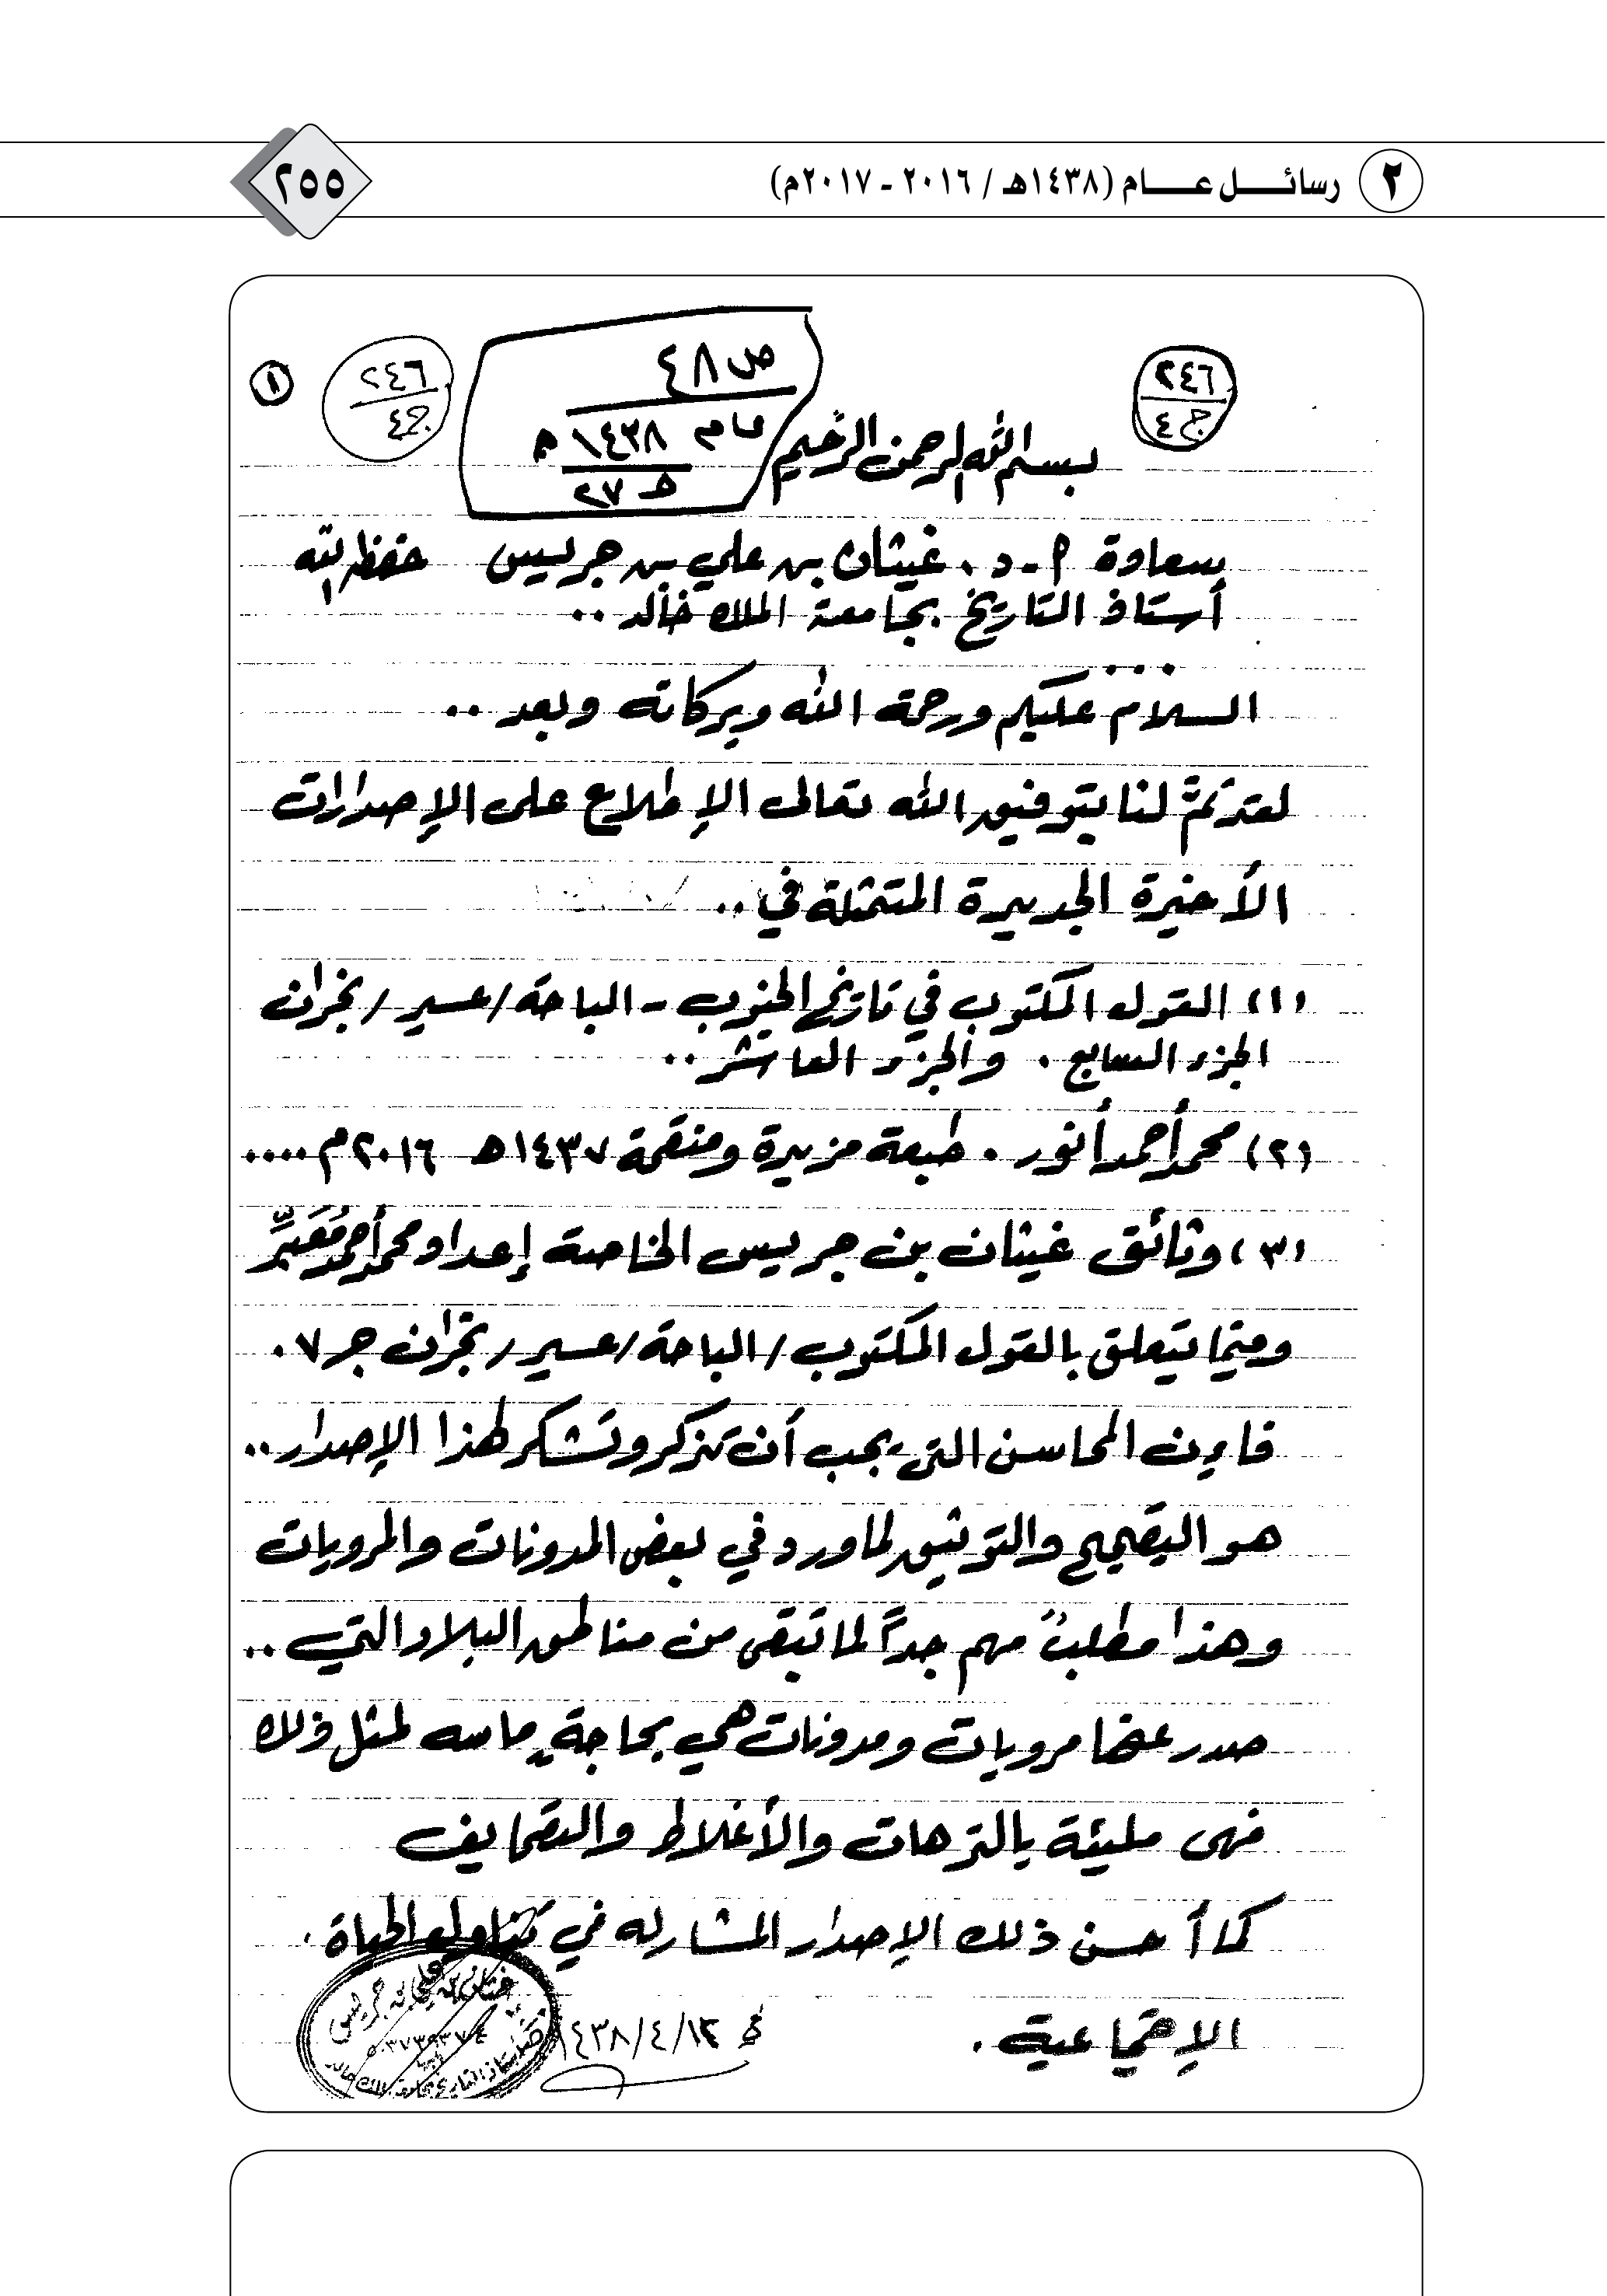 ٢ رسائل عام (١٤٣٨هـ / ٢٠١٦ - ٢٠١٧م)
٢٥٥
٢٤٦
ج ٤
ص ٤٨
عام ١٤٣٨ هـ
هـ ٢٧
٢٤٦
ج ٤
١
بسم الله الرحمن الرحيم
سعادة أ.د. غيثان بن علي بن جريس حفظه الله
أستاذ التاريخ بجامعة الملك خالد ..
السلام عليكم ورحمة الله وبركاته وبعد ..
لقد تمَّ لنا بتوفيق الله تعالى الإطلاع على الإصدارات
الأخيرة الجديدة المتمثلة في ..
(١) القول المكتوب في تاريخ الجنوب - الباحة / عسير / نجران
الجزء السابع . والجزء العاشر ..
(٢) محمد أحمد أنور . طبعة مزيدة ومنقحة ١٤٣٧هـ ٢٠١٦م ....
(٣) وثائق غيثان بن جريس الخاصة إعداد محمد أحمد مُعَبِّر
وفيما يتعلق بالقول المكتوب / الباحة / عسير / نجران جـ ٧ .
فإن المحاسن التي يجب أن تذكر وتشكر لهذا الإصدار ..
هو التصحيح والتوثيق لما ورد في بعض المدونات والمرويات
وهذا مطلبٌ مهم جداً لما تبقى من مناطق البلاد التي ..
صدر عنها مرويات ومدونات هي بحاجةٍ ماسه لمثل ذلك
فهي مليئة بالترهات والأغلاط والتصحايف
كما أحسن ذلك الإصدار المشار له في تناول الحياة
الإجتماعية .
في ١٤٣٨/٤/١٢
غيثان بن علي بن جريس
أستاذ التاريخ بجامعة الملك خالد